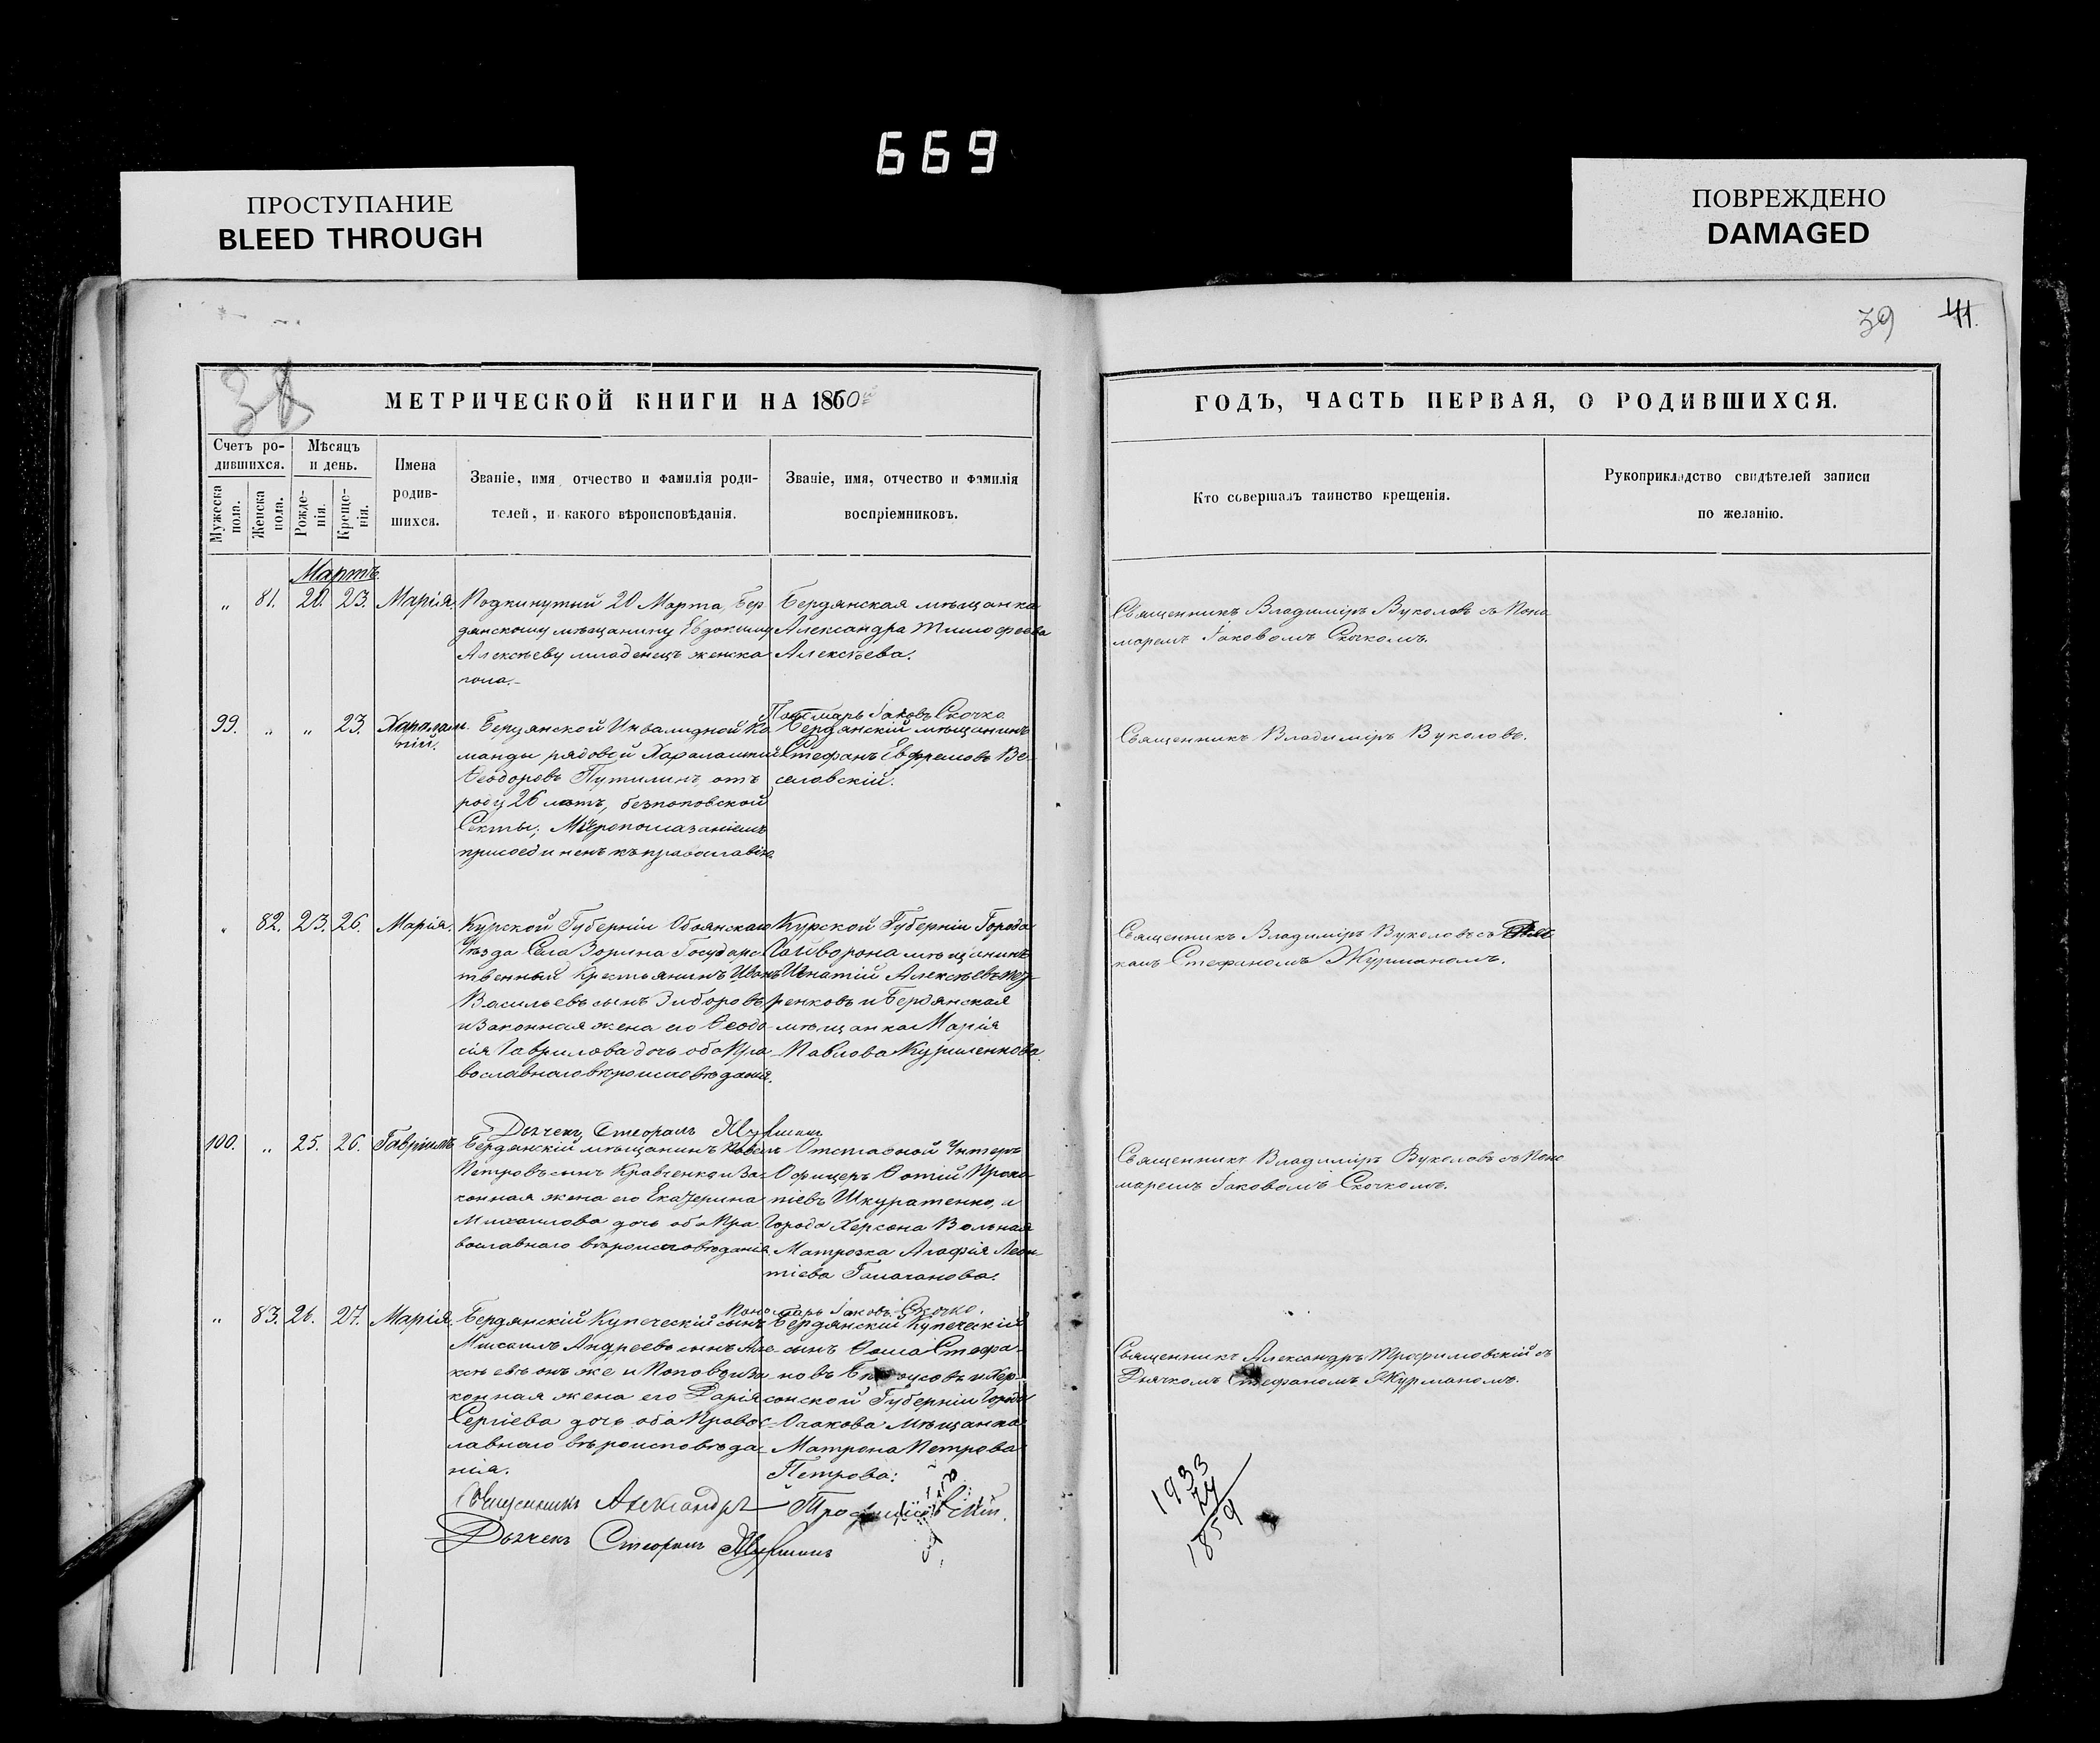 669
ПРОСТУПАНИЕ
BLEED THROUGH
ПОВРЕЖДЕНО
DAMAGED
39 41.
38
МЕТРИЧЕСКОЙ КНИГИ НА 1860
ГОДЪ, ЧАСТЬ ПЕРВАЯ, О РОДИВШИХСЯ.
Счетъ ро-
дившихся.
Мужеска
пола.
Женска
пола.
Мѣсяцъ
и день.
Рожде-
нія.
Креще-
нія.
Имена
родив-
шихся.
Званіе, имя, отчество и фамилія роди-
телей, и какого вѣроисповѣданія.
Званіе, имя, отчество и фамилія
воспріемниковъ.
Кто совершалъ таинство крещенія.
Рукоприкладство свидѣтелей записи
по желанію.
Мартъ
„ 81. 20. 23. Марія.
Подкинутый 20 Марта, Бер
дянскому мѣщанину Евдокиму
Алексѣеву младенецъ женска
пола.-
Бердянская мѣщанка
Александра Тимофеева
Алексѣева.
Священникъ Владиміръ Вуколовъ съ Поно
маремъ Іаковомъ Скочкомъ.
Пономарь Іаковъ Скочко
99. „ „ 23. Харалам
пій.
Бердянской Инвалидной Ко
манды рядовой Харалампій
Ѳеодоровъ Путилинъ, отъ
роду 26 лѣтъ, безпоповской
Секты; Мѵропомазаніемъ
присоединенъ къ православію
Бердянскій мѣщанинъ
Стефанъ Евфремовъ Ве-
селовскій.
Священникъ Владиміръ Вуколовъ.
„ 82. 23. 26. Марія.
Курской Губерніи Обоянскаго
Уѣзда Села Зорина Государс
твенный Крестьянинъ Иванъ
Васильевъ сынъ Зиборовъ
и Законная жена его Ѳеодо
сія Гаврилова дочь оба Пра
вославнаго вѣроисповѣданія.
Курской Губерніи Города
Гайворона мѣщанинъ
Игнатій Алексѣевъ
ренковъ и Бердянская
мѣщанка Марія
Павлова Куриленкова.
Священникъ Владиміръ Вуколовъ съ
комъ Стефаномъ Журманомъ.
Дьячекъ Стефанъ Журманъ
100. „ 25. 26. Гавріилъ
Бердянскій мѣщанинъ Павелъ
Петровъ сынъ Кравченко и За-
конная жена его Екатерина
Михаилова дочь оба Пра
вославнаго вѣроисповѣданія
Отставной Унтеръ
Офицеръ Ѳотій Проко
піевъ Шкуратенко, и
Города Херсона Вольная
Матрозка Агафія Леон-
тіева Галаганова.
Священникъ Владиміръ Вуколовъ съ Поно
маремъ Іаковомъ Скочкомъ.
Пономарь Іаковъ Скочко.
„ 83. 26. 27. Марія.
Бердянскій Купеческій сынъ
Михаилъ Андреевъ сынъ Але-
ксѣевъ онъ же и Поповъ и За
конная жена его Дарія
Сергіева дочь оба Правос
лавнаго вѣроисповѣда
нія.
Бердянскій Купеческій
сынъ Ѳома Стефа-
новъ и Хер
сонской Губерніи Города
Очакова мѣщанка
Матрона Петрова
Петрова:
Священникъ Александръ Трофимовскій съ
Дьячкомъ Стефаномъ Журманомъ.
Священникъ Александръ Трофимовскій.
Дьячекъ Стефанъ Журманъ
1933
74
1859